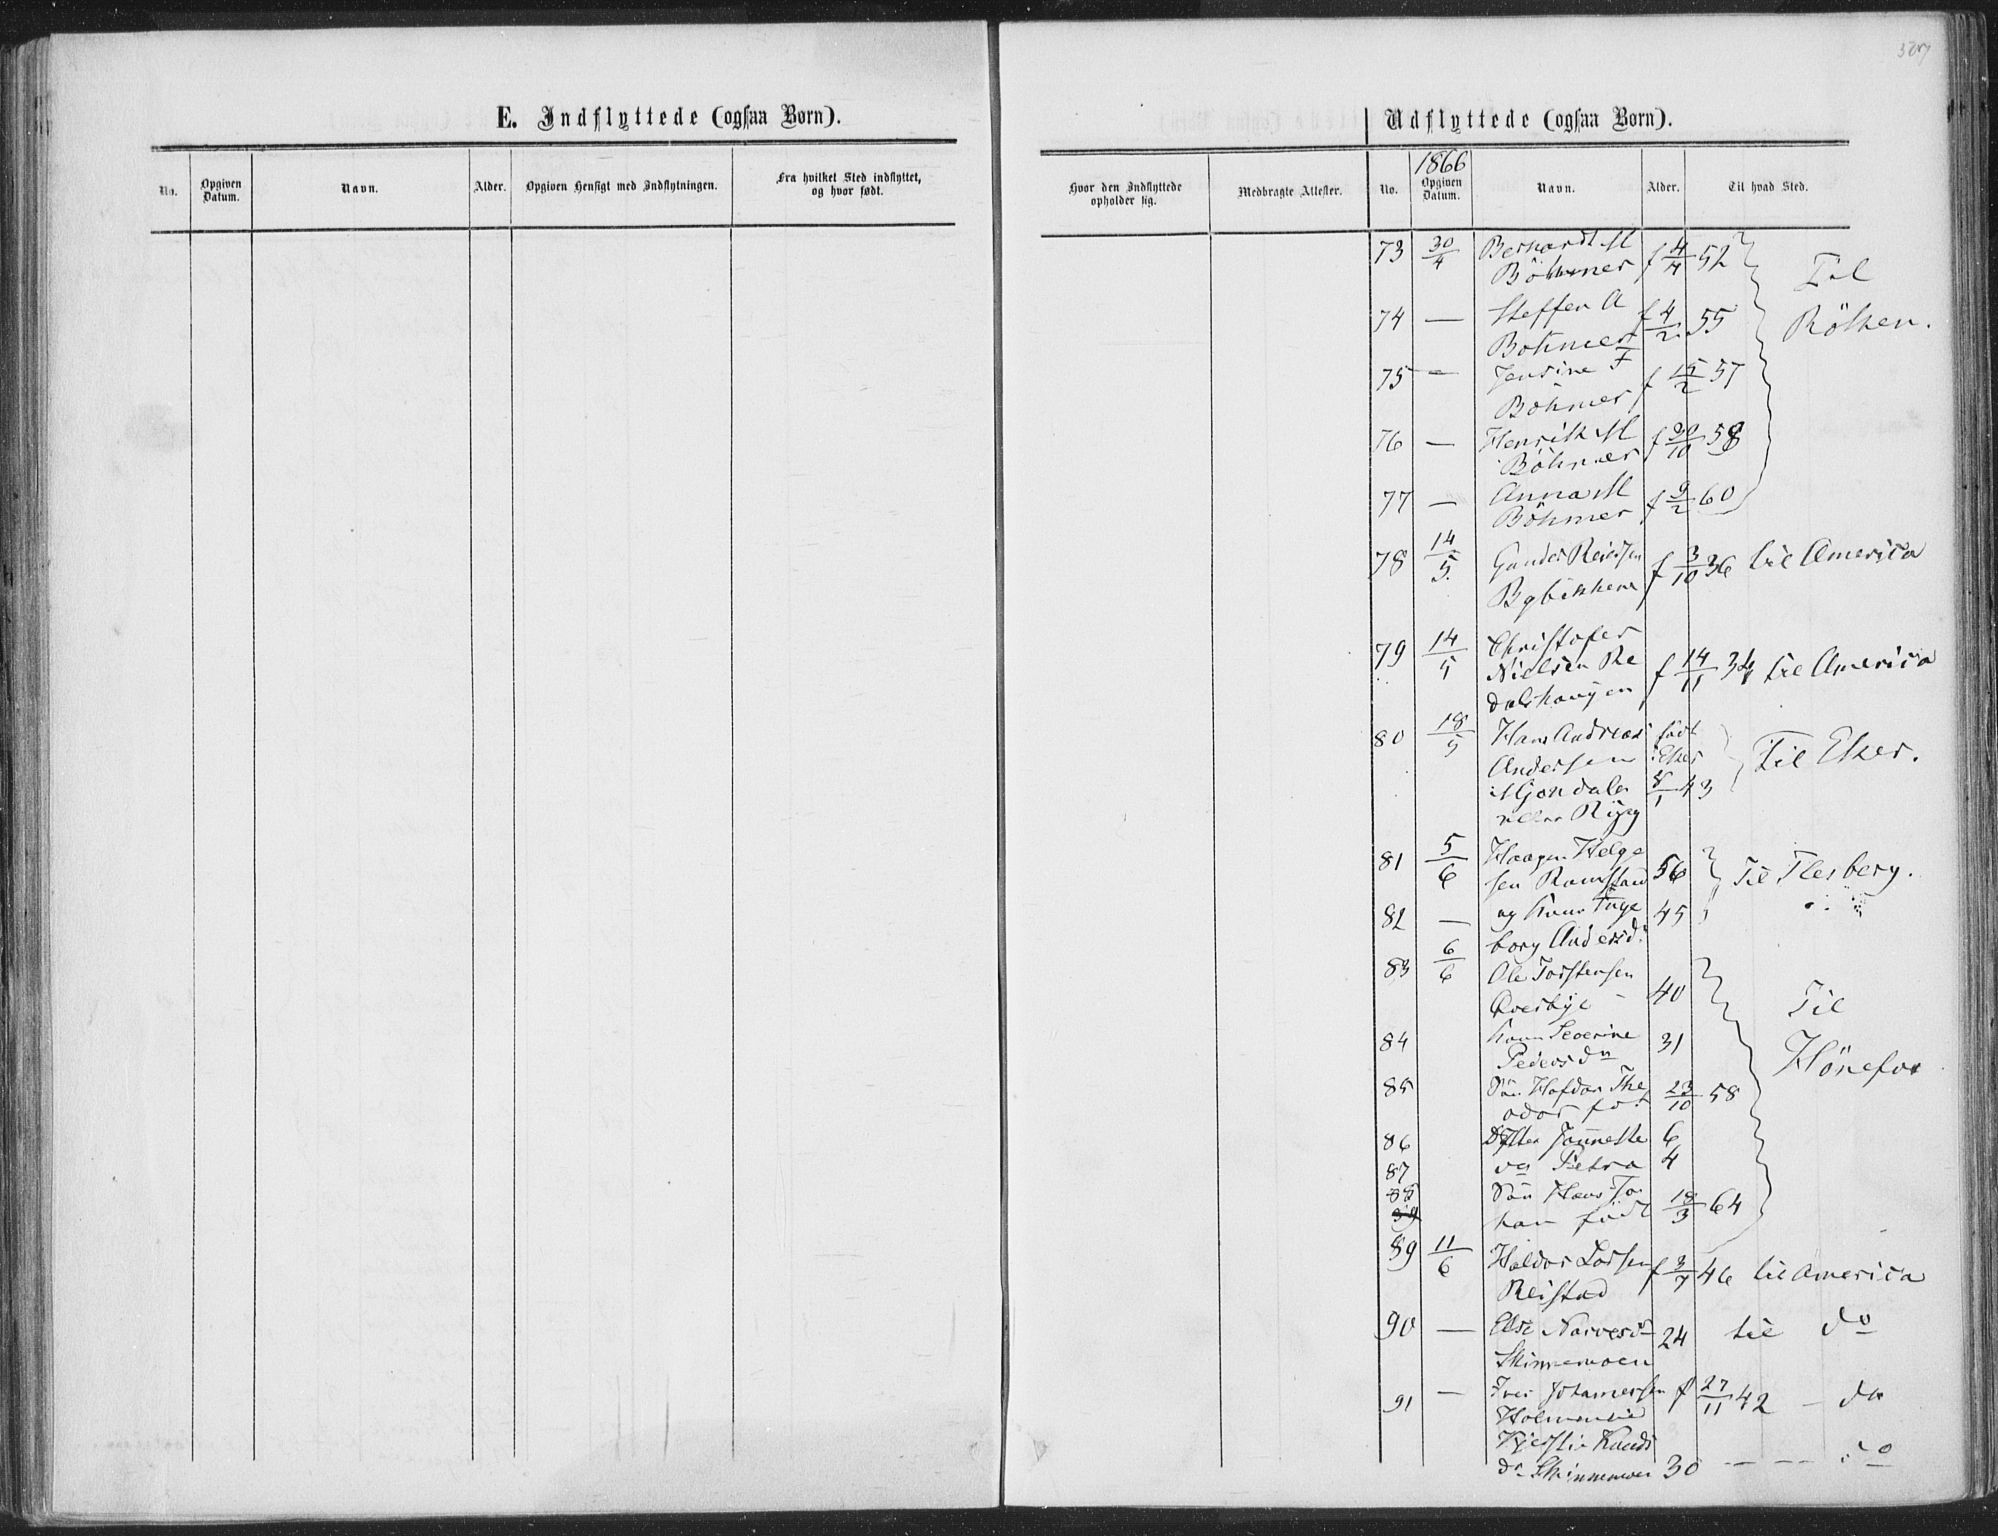 307
E. Indflyttede (ogsaa Børn).
No.
Opgiven Datum.
Navn.
Alder.
Opgiven Hensigt med Indflytningen.
Fra hvilket Sted indflyttet, og hvor født.
Udflyttede (ogsaa Børn).
Hvor den Indflyttede opholder sig.
Medbragte Attester.
No.
1866
Opgiven Datum.
Navn.
Alder.
Til hvad Sted.
73 30/4 Berhardt M
Böhmer f 4/4 52
Til
74 — Steffen A
Bohmer f 4/2 55
Röken.
75 — Jensine F
Böhmer f 15/2 57
76 — Henrik M
Böhmer f 30/10 58
77 — Anna M
Böhmer f 9/2 60
78 14/5 Gunder Reiersen
f 3/10 36 til America
79 14/5 Christofer
Nielsen Re
dalshaugen f 14/11 34 til America
80 18/5 Hans Andreas født
Andersen i Eker
Mjøndalen 8/1 43
Til Eker.
81 5/6 Haagen Helge
sen Ramstad 56
Til Flesberg.
82 — og kone Inge 45
borg Andersd.
83 6/6 Ole Torstensen
Overbye 40
Til
84 kone Severine 31
Pedersdn
Hönefos
85 Sön Hafdor The
odor fö. 23/10 58
86 Dötter Jannette 6
87 og Petra 4
88 Sön Hans Jo
han född 18/3 64
89 11/6 Haldor Larsen
Reistad f 3/7 46 til America
90 — Else Narvesdn 24 til do
Skinnemoen
91 — Iver Johannessen f 27/11 42 — do
Kjersti Knuds
dn Skinnemoen 30 — — — do